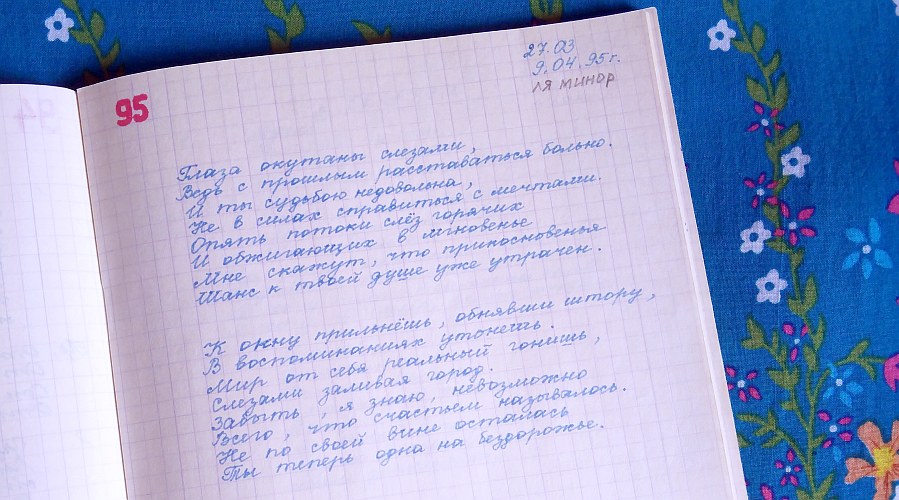 95
27.03
9.04.95г.
ля минор
Глаза окутаны слезами,
Ведь с прошлым расставаться больно.
И ты судьбою недовольна,
Не в силах справиться с мечтами.
Опять потоки слёз горячих
И обжигающих в мгновенье
Мне скажут, что прикосновенья
Шанс к твоей душе уже утрачен.
К окну прильнёшь, обнявши штору,
В воспоминаниях утонешь.
Мир от себя реальный гонишь,
Слезами заливая город.
Забыть, я знаю, невозможно
Всего, что счастьем называлось.
Не по своей вине осталась
Ты теперь одна на бездорожье.